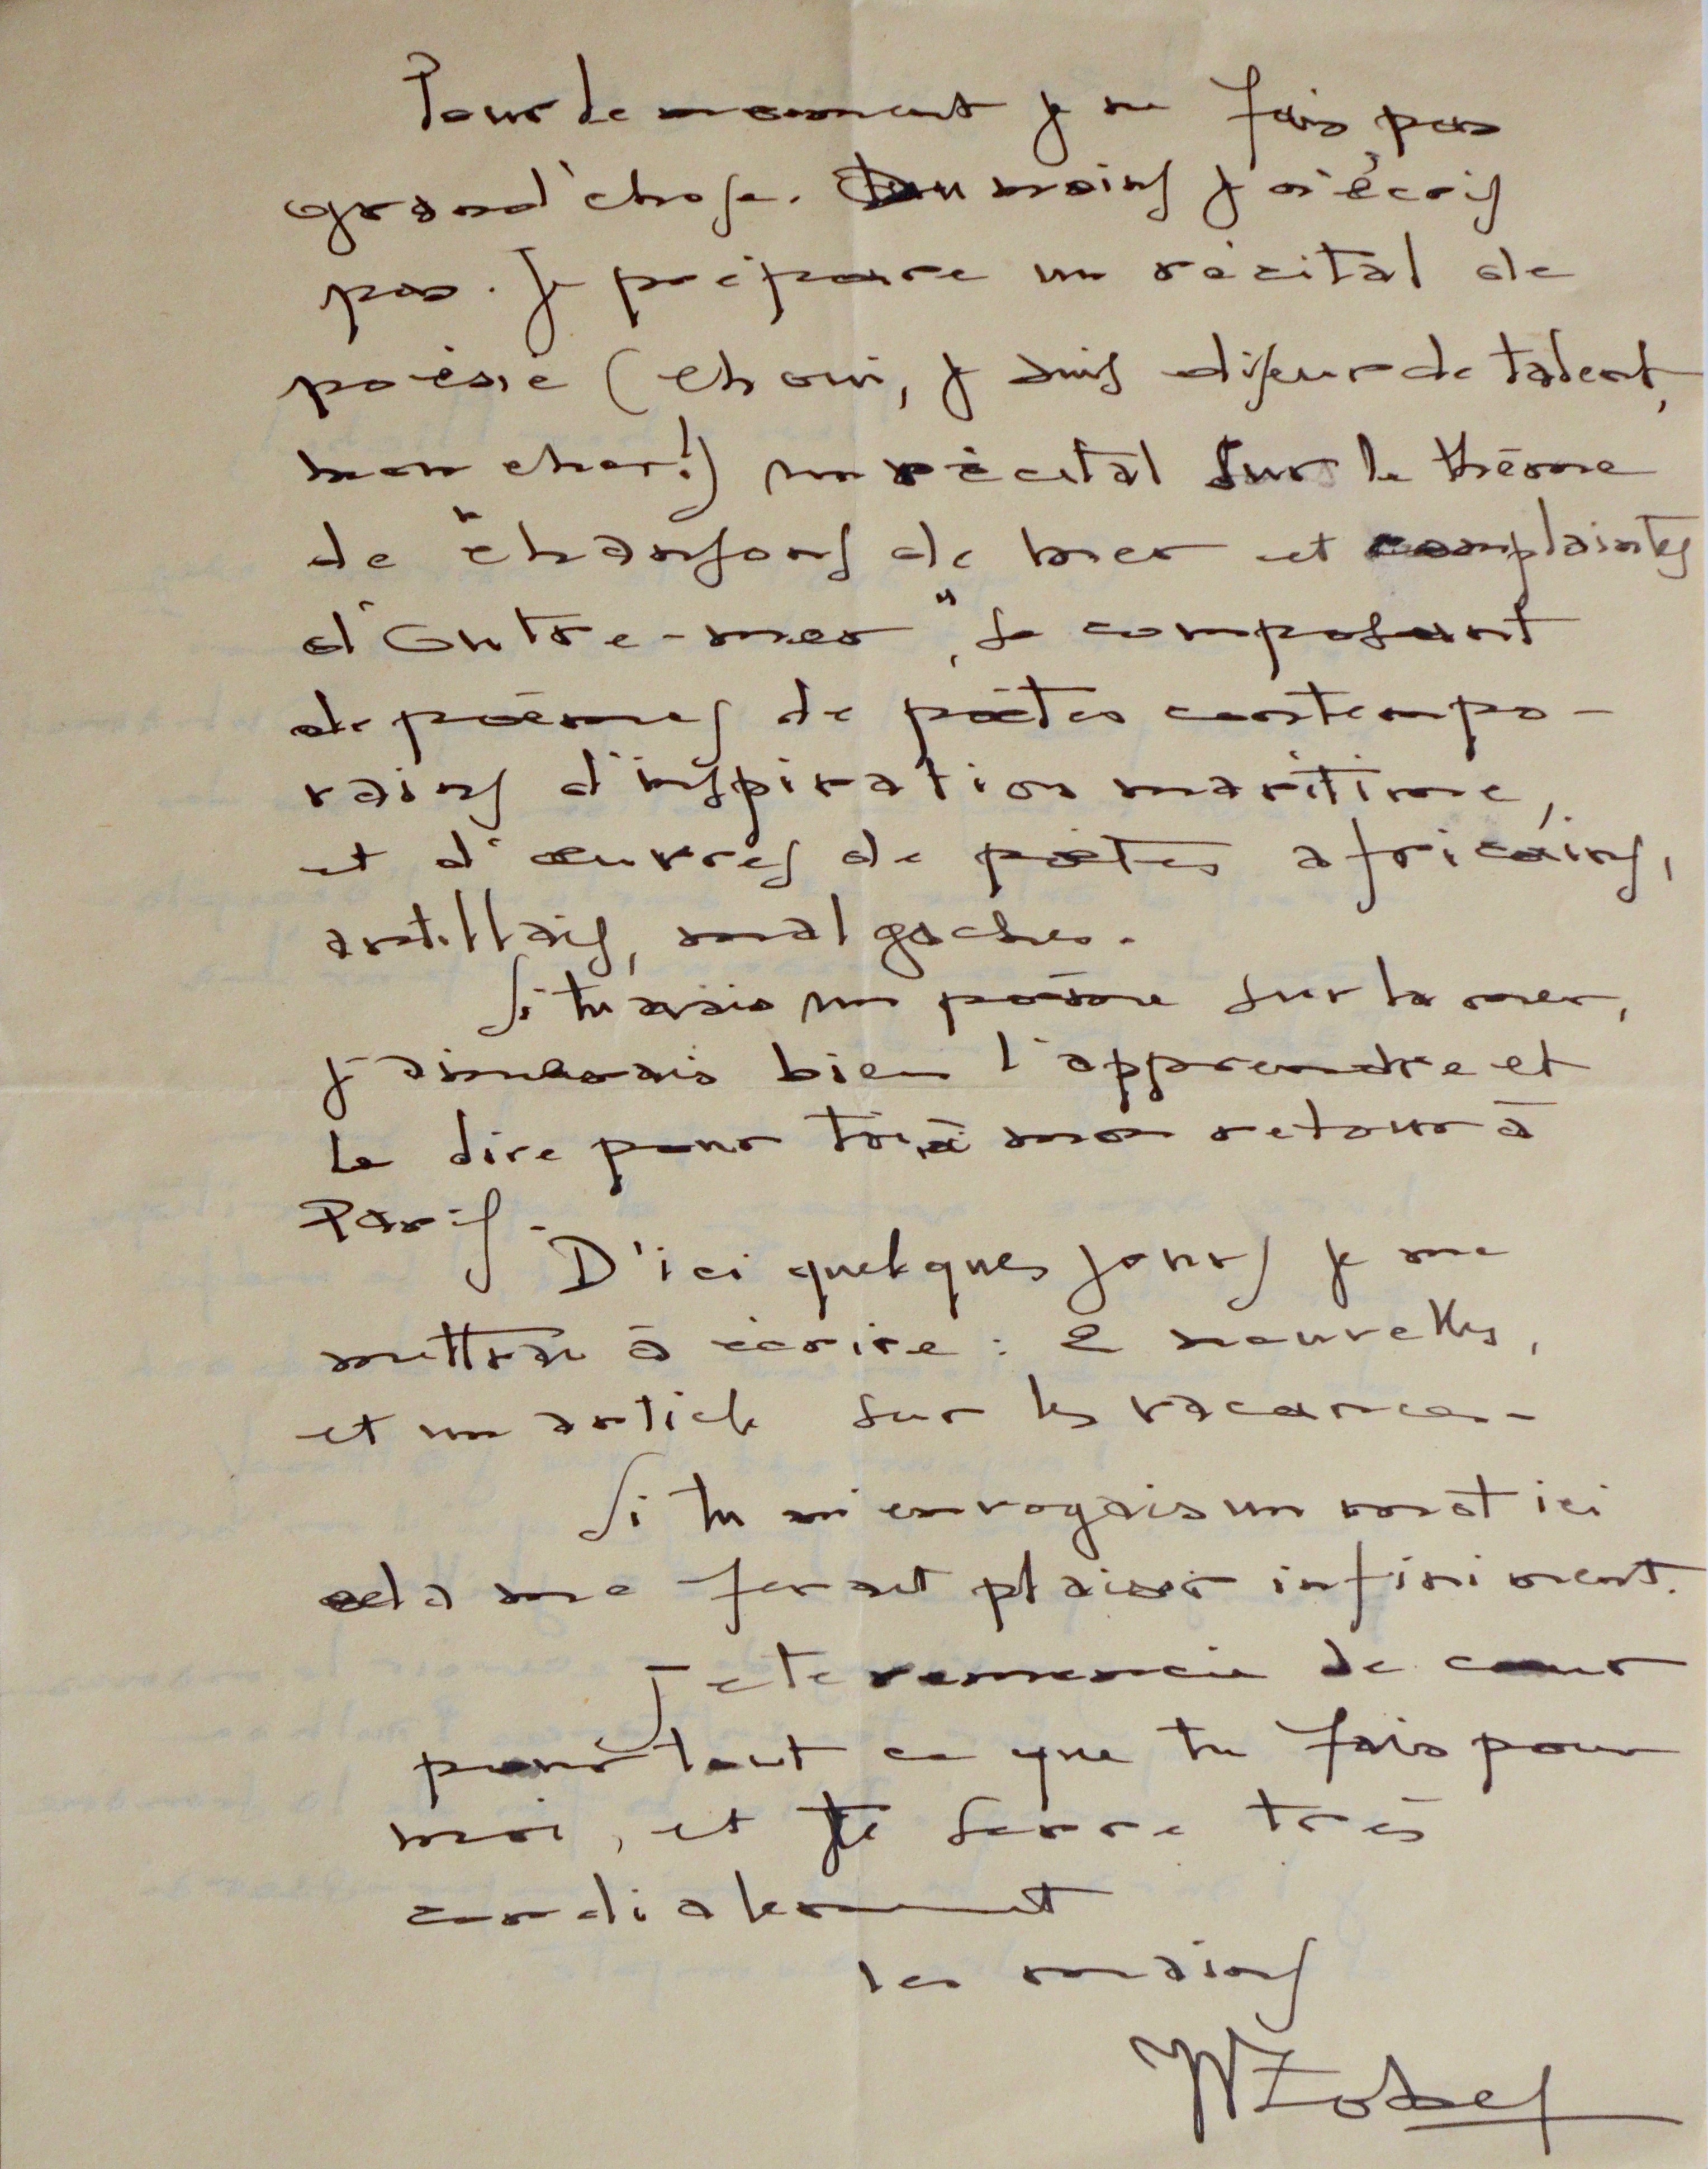 Pour le moment je ne fais pas
grand'chose. Du moins je n'écris
pas. Je prépare un récital de
poésie (eh oui, je suis diseur de talent,
mon cher!) un récital sur le thème
de "chansons de mer et complaintes
d'Outre-mer", se composant
de poèmes de poètes contempo-
rains d'inspiration maritime,
et d'œuvres de poètes africains,
antillais, malgaches.
Si tu avais un poème sur la mer,
j'aimerais bien l'apprendre et
le dire pour toi, à mon retour à
Paris.
D'ici quelques jours je me
mettrai à écrire : 2 nouvelles,
et un article sur les vacances.
Si tu m'envoyais un mot ici
cela me ferait plaisir infiniment.
Je te remercie de cœur
pour tout ce que tu fais pour
moi, et te serre très
cordialement
les mains
Zobel